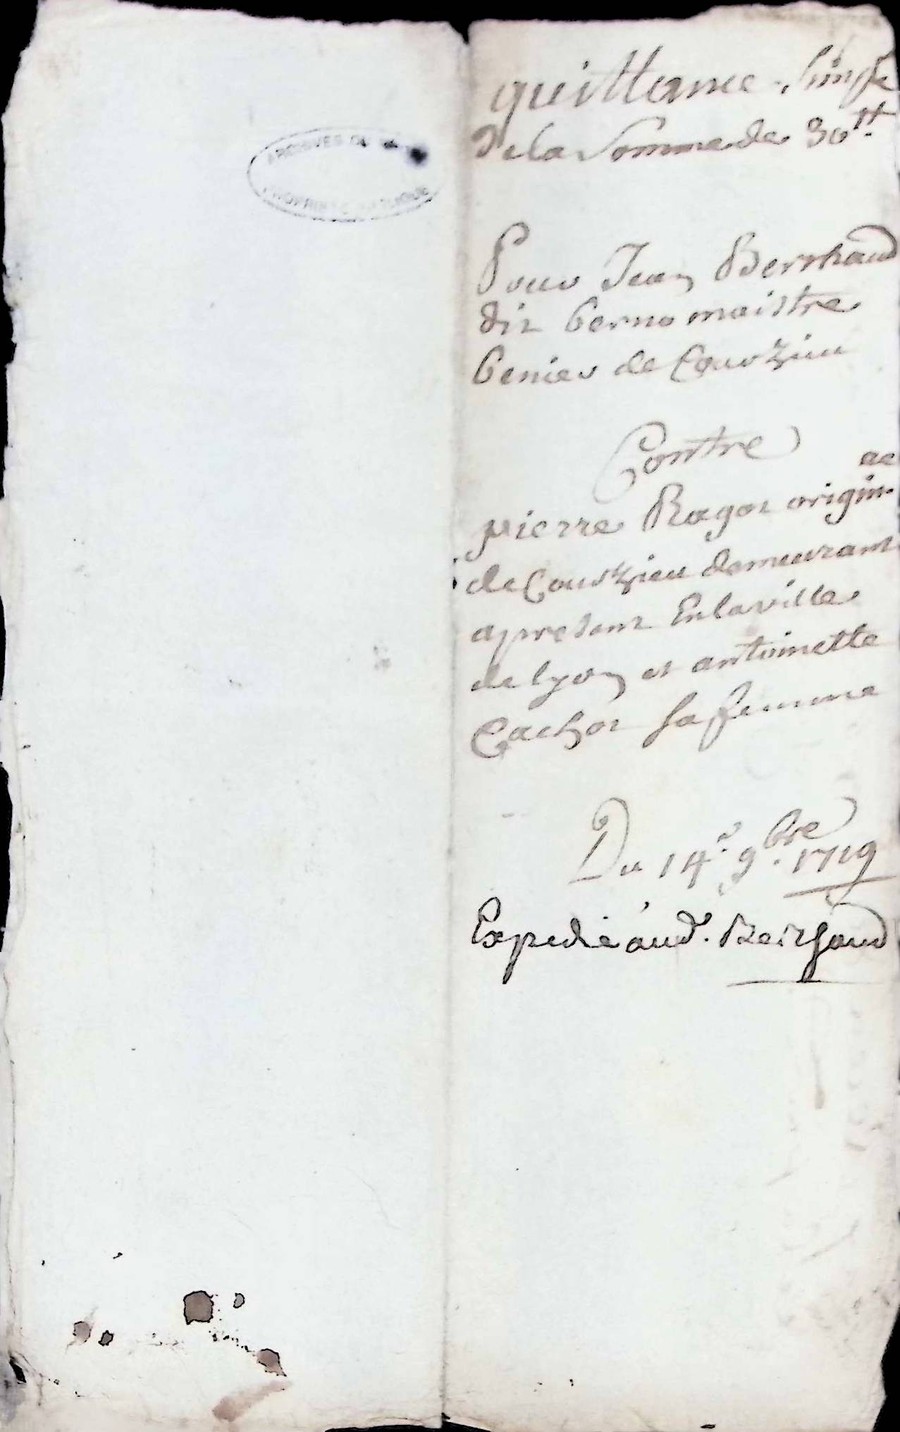 ARCHIVES DU
PROPRIÉTÉ PUBLIQUE
quittance simple
de la Somme de 30ₗₜ.
Pour Jean Berthaud
dit berno maistre
benier de Courzieu
Contre
pierre Ragot originae
de Courzieu demeurant
apresant En la ville
de lyon et antoinette
Cachot sa femme
Du 14e. 9bre. 1719
Expedié aud. Berthaud